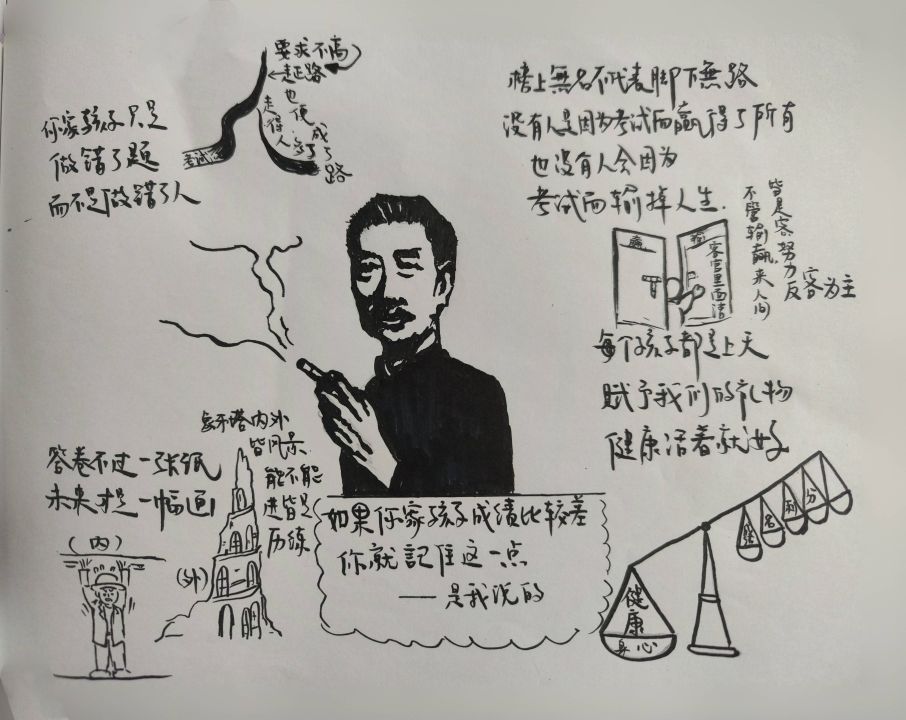 你家孩子只是
做错了题
而不是做错了人
要求不高
走正路
走得人多了
也便成了路
考试
榜上無名不代表脚下無路
没有人是因为考试而赢得了所有
也没有人会因为
考试而输掉人生.
赢
输
客官里面请
不管输赢.来人间
皆是客.努力反客为主
每个孩子都是上天
赋予我们的礼物
健康活着就好
象牙塔内外
皆风景
能不能
进皆是
历练
答卷不过一张纸
未来才是一幅画
(内)
(外)
如果你家孩子成绩比较差
你就記住这一点
——是我说的
名
利
分
健康
身心